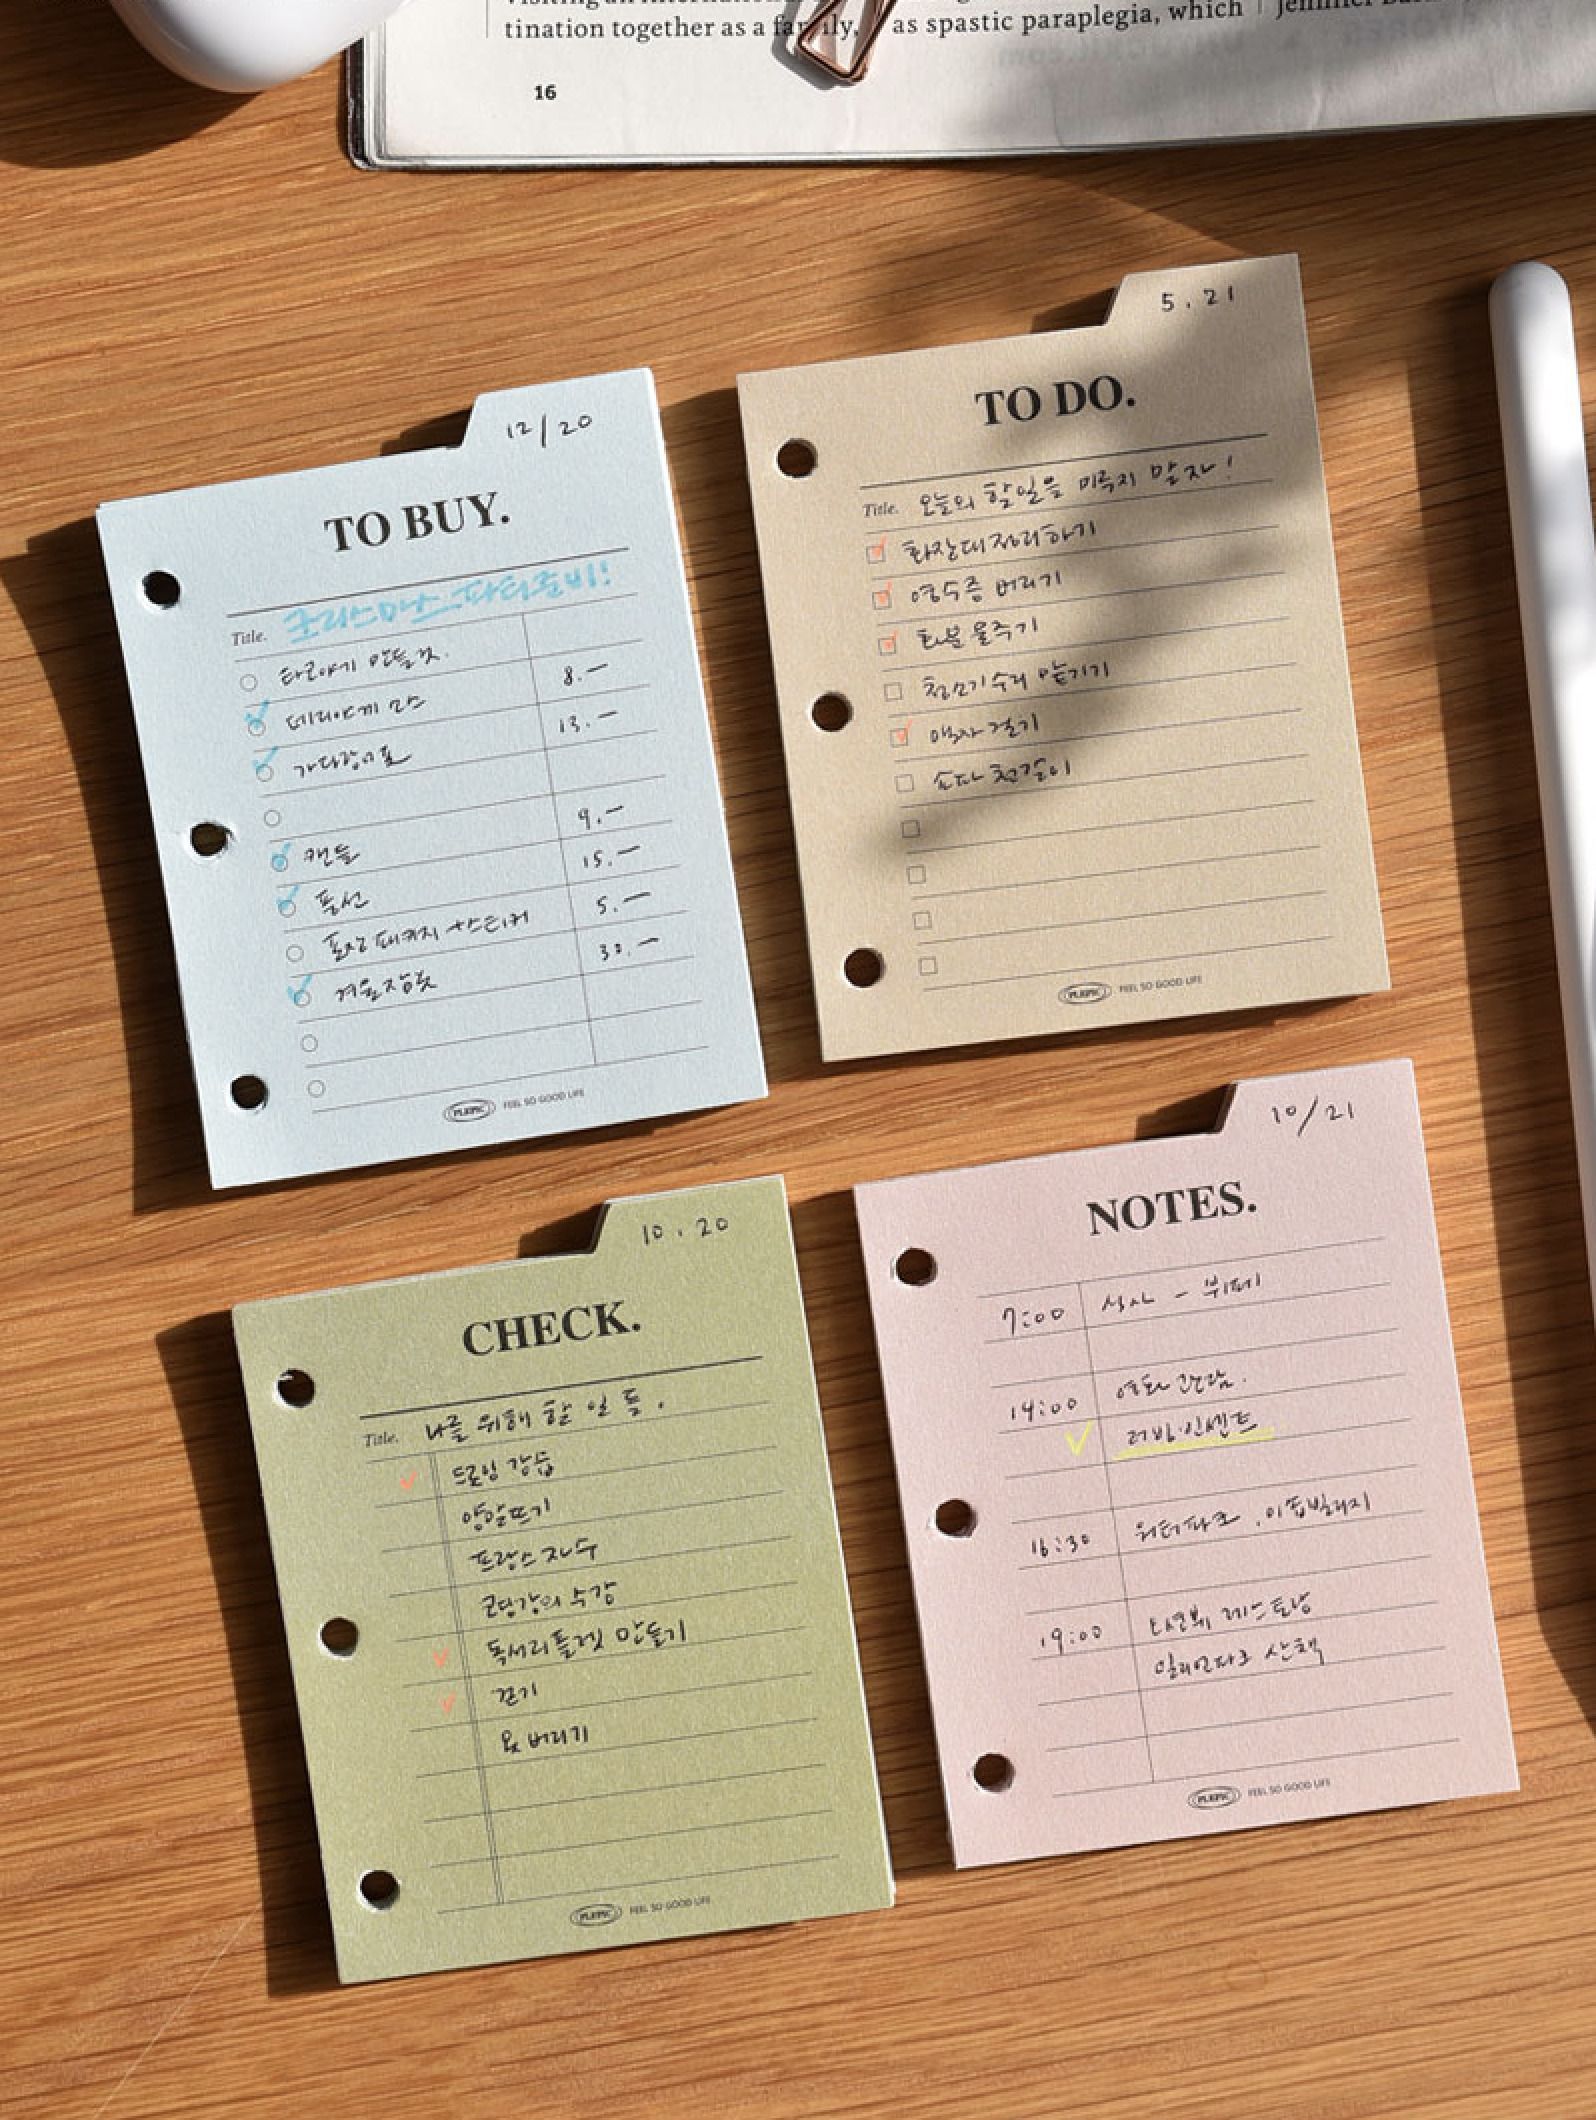 tination together as a family,
as spastic paraplegia, which
16
12/20
TO BUY.
Title. 크리스마스 파티준비!
타코야끼 만들것.
데리야끼 소스 8.-
가다랑어포 13.-
캔들 9.-
풍선 15.-
포장 패키지 + 스티커 5.-
겨울잠옷 30.-
PLEPIC FEEL SO GOOD LIFE
5.21
TO DO.
Title. 오늘의 할일을 미루지 말자!
화장대정리하기
영수증 버리기
화분 물주기
청소기 수리 맡기기
액자 걸기
소파 천갈이
PLEPIC FEEL SO GOOD LIFE
10.20
CHECK.
Title. 나를 위해 할 일 들.
드로잉 강습
양말뜨기
프랑스 자수
코딩강의 수강
독서리플렛 만들기
걷기
옷 버리기
PLEPIC FEEL SO GOOD LIFE
10/21
NOTES.
7:00 식사 - 뷔페
14:00 영화 관람.
러빙.빈센트
16:30 워터파크,
19:00 레스토랑
산책
PLEPIC FEEL SO GOOD LIFE